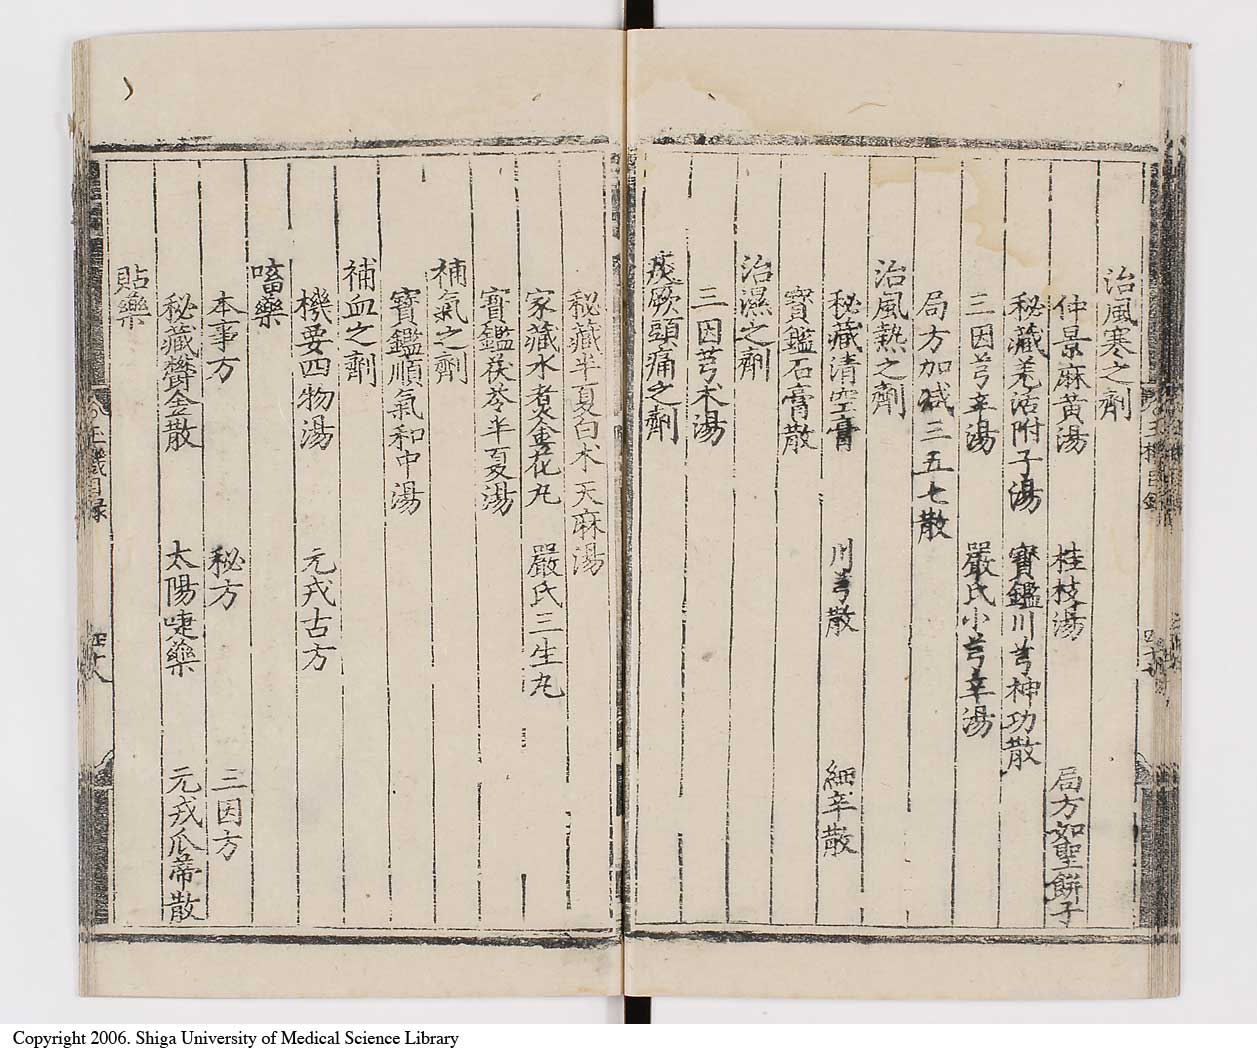 治風寒之劑
仲景麻黃湯 桂枝湯 局方如聖餅子
秘藏羌活附子湯 寶鑑川芎神功散
三因芎辛湯 嚴氏小芎辛湯
局方加减三五七散
治風熱之劑
秘藏清空膏 川芎散 細辛散
寶鑑石膏散
治濕之劑
三因芎术湯
痰厥頭痛之劑
秘藏半夏白术天麻湯
家藏水煑金花丸 嚴氏三生丸
寶鑑茯苓半夏湯
補氣之劑
寶鑑順氣和中湯
補血之劑
機要四物湯 元戎古方
㗜藥
本事方 秘方 三因方
秘藏欝金散 太陽㖡藥 元戎瓜蔕散
貼藥
玉機目录
四十八
Copyright 2006. Shiga University of Medical Science Library